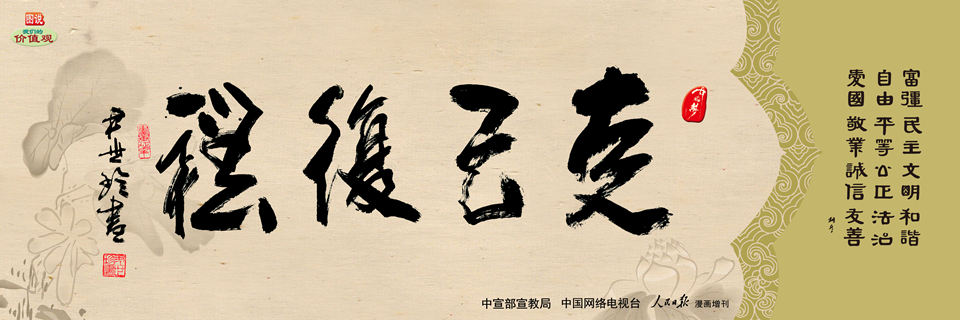 图说
我们的
价值观
克己復禮
尹世玲書
富彊民主文明和諧
自由平等公正法治
愛國敬業誠信友善
中宣部宣教局 中国网络电视台 人民日报 漫画增刊